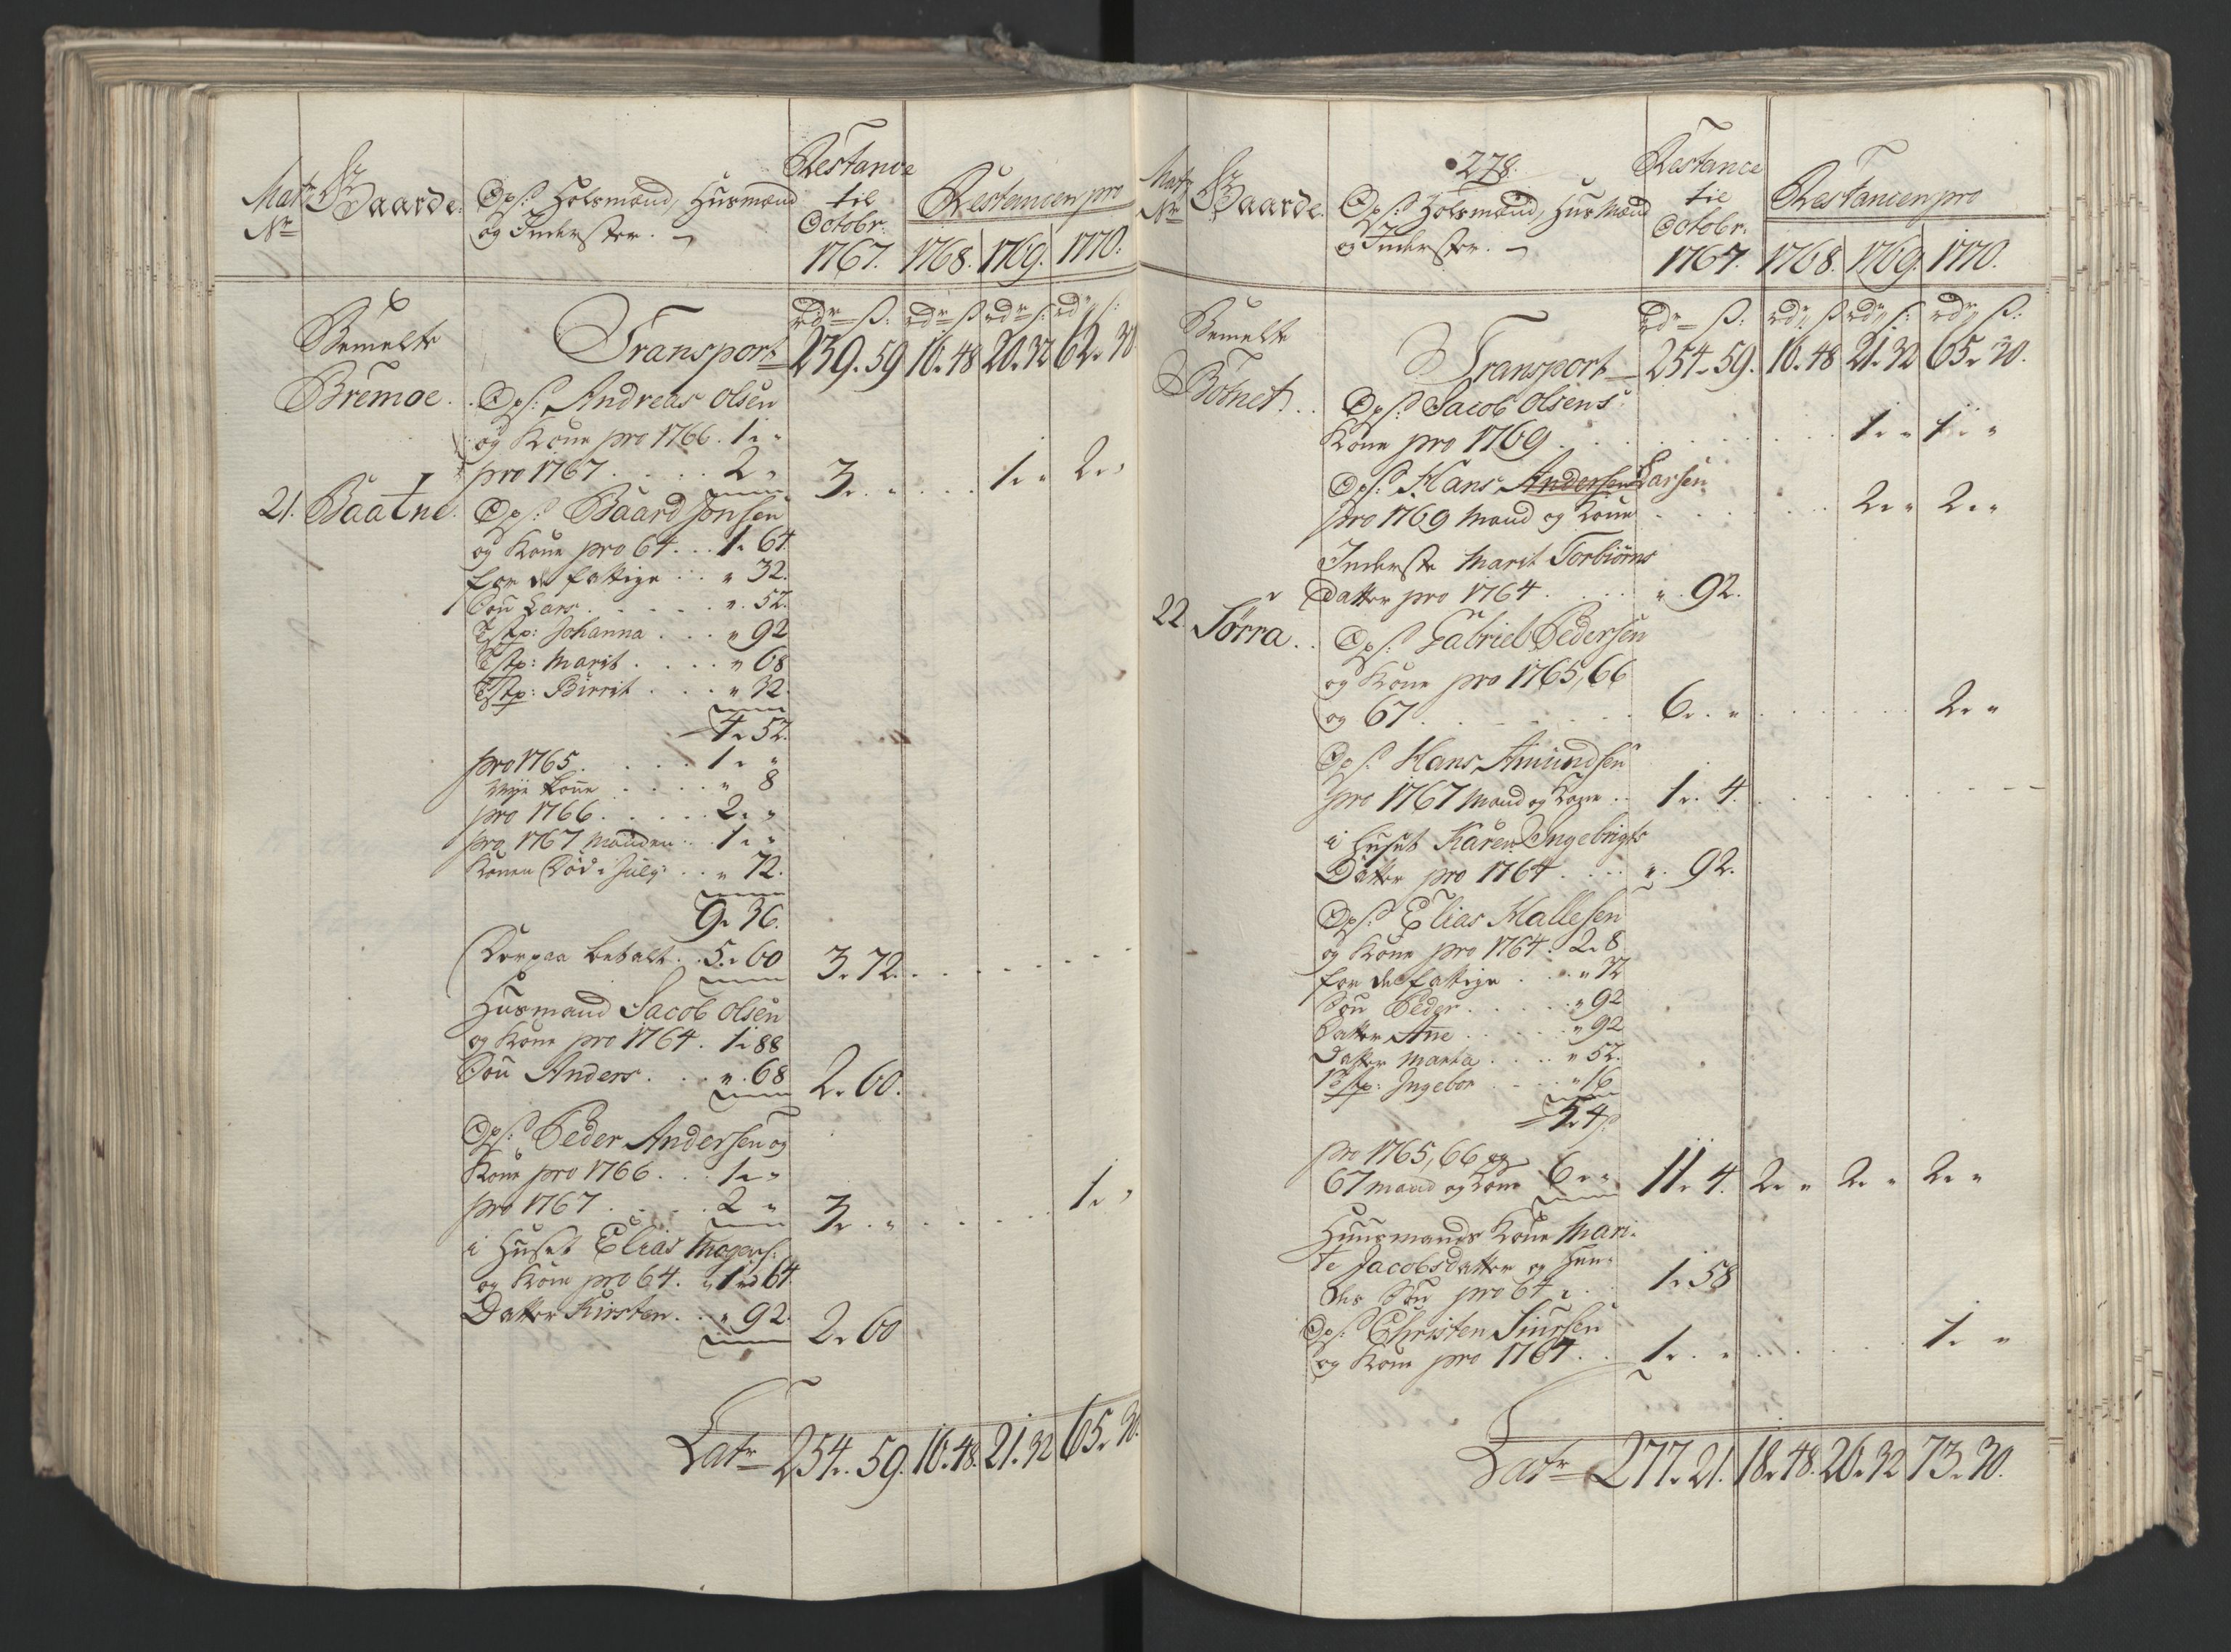 Matr Nr
Gaarde.
Ops: Holsmænd, Husmænd
og Inderster.
Restance
til
Octobr:
1767.
Restancen pro
1768. 1769. 1770.
rdr ß: rdr ß rdr ß: rdr ß:
Bemelte
Transport 239. 59 16. 48 20. 32 62. 30
Bremoe. Ops: Andreas Olsen
og Kone pro 1766. 1. "
pro 1767 . . . . 2 " 3. " . . . 1. " 2. "
21. Baatne. Ops: Baard Jonsen
og Kone pro 64 . . 1. 64.
for de fattige . . " 32.
Søn Lars . . . . . ". 52.
Tstp: Johanna . . . " 92
Tstp: Marit . . . . " 68
Tstp: Birrit . . . " 32.
4. 52.
pro 1765 . . . . . 1. "
nye Kone . . . . " 8
pro 1766 . . . . . 2. "
pro 1767 Manden . . 1. "
Konen død i July . . " 72.
9. 36.
Derpaa betalt . . 5. 60 3. 72. . . . . . .
Husmand Jacob Olsen
og Kone pro 1764 . 1. 88
Søn Anders . . . ". 68 2. 60.
Ops: Peder Andersen og
Kone pro 1766 . . . 1. "
pro 1767 . . . . 2 " 3. " . . . . . 1. "
i Huset Elias Mogens:
og Kone pro 64. " 1. 64
Datter Kirsten . . " 92. 2. 60
Latr 254. 59. 16. 48. 21. 32 65. 30.
278.
Matr Nr
Gaarde.
Ops: Holsmænd, Husmænd
og Inderster.
Restance
til
Octobr.
1767.
Restancen pro
1768. 1769. 1770.
rdr ß: rdr ß rdr ß: rdr ß:
Bemelte
Transport 254. 59. 16. 48 21. 32 65. 30.
Botnet. . Ops: Jacob Olsens
Kone pro 1769 . . . . . . . . . . 1. " 1. "
Ops: Hans Andersen Larsen
pro 1769 Mand og Kone . . . . . . 2. " 2. "
Inderste Marit Torbiørns
Datter pro 1764 . . . . " . 92.
22. Sørra . . Ops: Gabriel Pedersen
og Kone pro 1765, 66
og 67 . . . . . . . . 6. . " . . . . . . 2. "
Ops: Hans Amundsen
pro 1767 Mand og Kone . . 1. 4. . . . . . . . .
i Huset Karen Ingebrigts
Datter pro 1764 . . . . ". 92.
Ops: Elias Hallesen
og Kone pro 1764: 2. 8
for de fattige . . . " 32
Søn Peder . . . . . " 92
Datter Ane . . . . . " 92
Datter Marta . . . . " 52.
Tstp: Ingebor . . . . " 16
5. 4 ß
pro 1765, 66 og
67 Mand og Kone 6. " 11. 4. 2. " 2. " 2. "
Huusmands Kone Mari-
te Jacobsdatter og hen-
des Søn pro 64 . . . 1. 58
Ops: Christen Siursen
og Kone pro 1767 . . 1. . " . . . . . 1. "
Latr 277. 21. 18. 48. 26. 32 73. 30.